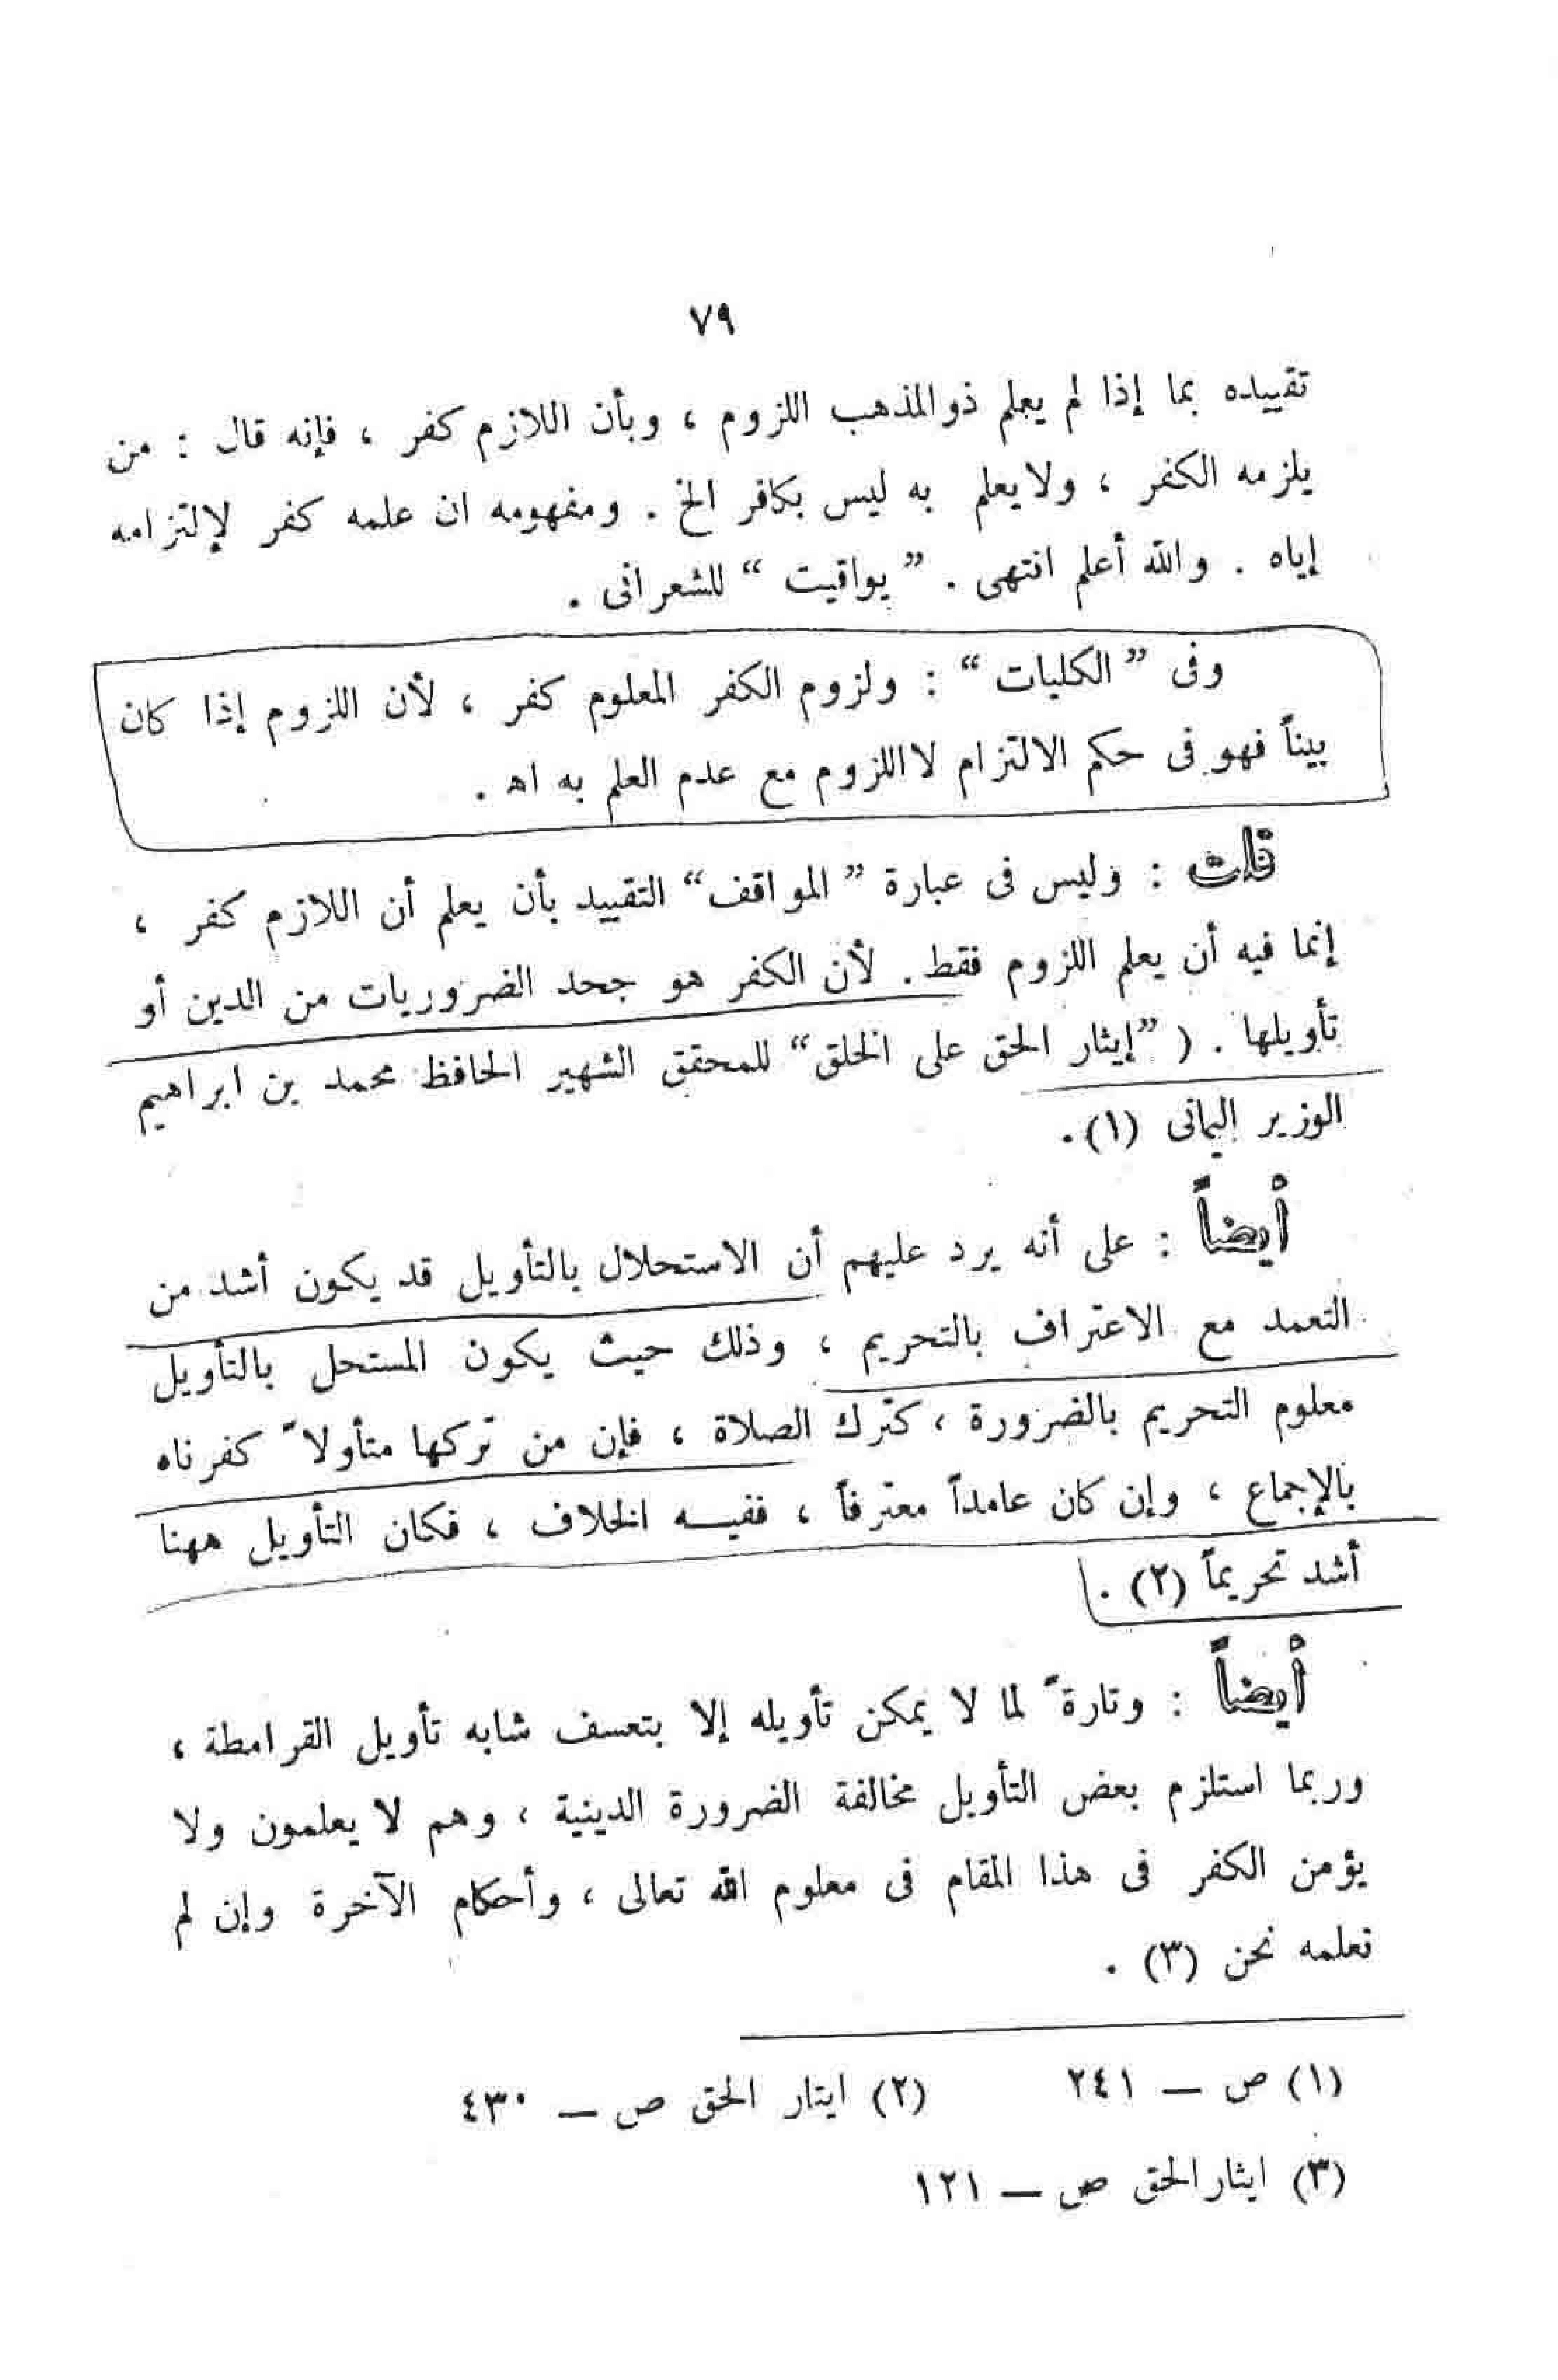 ٧٩
تقييده بما إذا لم يعلم ذوالمذهب اللزوم ، وبأن اللازم كفر ، فإنه قال : من
يلزمه الكفر ، ولايعلم به ليس بكافر الخ . ومفهومه ان علمه كفر لإلتزامه
إياه . والله أعلم انتهى . ” يواقيت “ للشعرانى .
وفى ” الكليات “ : ولزوم الكفر المعلوم كفر ، لأن اللزوم إذا كان
بيناً فهو فى حكم الالتزام لااللزوم مع عدم العلم به اه .
قلت : وليس فى عبارة ” المواقف“ التقييد بأن يعلم أن اللازم كفر ،
إنما فيه أن يعلم اللزوم فقط . لأن الكفر هو جحد الضروريات من الدين أو
تأويلها . ( ”إيثار الحق على الخلق“ للمحقق الشهير الحافظ محمد بن ابراهيم
الوزير اليمانى (١) .
أيضاً : على أنه يرد عليهم أن الاستحلال بالتأويل قد يكون أشد من
التعمد مع الاعتراف بالتحريم ، وذلك حيث يكون المستحل بالتأويل
معلوم التحريم بالضرورة ، كترك الصلاة ، فإن من تركها متأولاً كفرناه
بالإجماع ، وإن كان عامداً معترفاً ، ففيـه الخلاف ، فكان التأويل ههنا
أشد تحريماً (٢) .
أيضاً : وتارةً لما لا يمكن تأويله إلا بتعسف شابه تأويل القرامطة ،
وربما استلزم بعض التأويل مخالفة الضرورة الدينية ، وهم لا يعلمون ولا
يؤمن الكفر فى هذا المقام فى معلوم الله تعالى ، وأحكام الآخرة وإن لم
نعلمه نحن (٣) .
(١) ص — ٢٤١ (٢) ايثار الحق ص — ٤٣٠
(٣) ايثارالحق ص — ١٢١